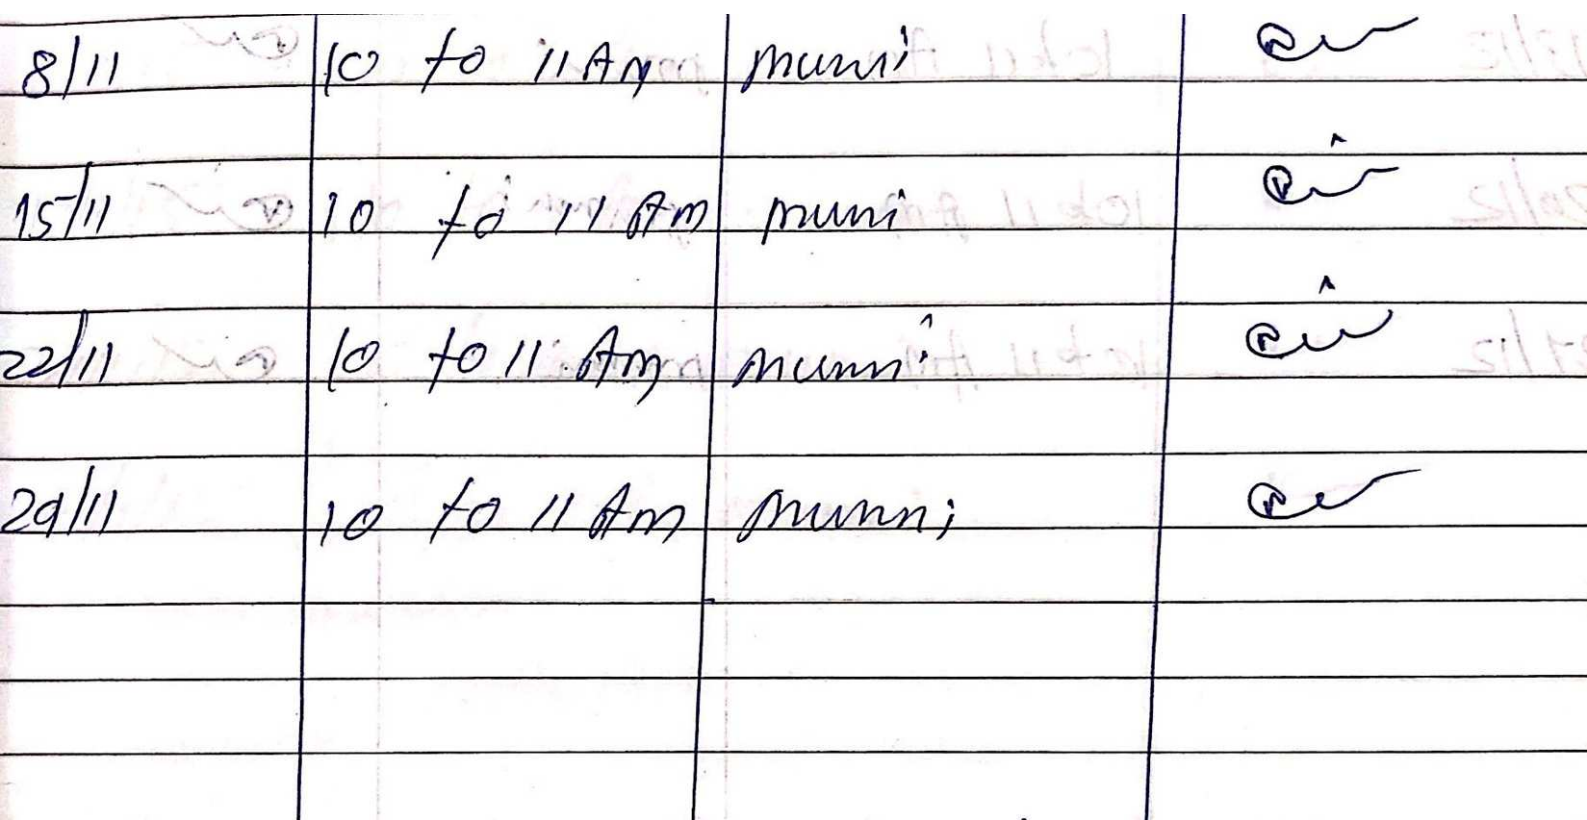 8/11 10 to 11 AM munni
15/11 10 to 11 Am muni
22/11 10 to 11 Am munni
29/11 10 to 11 Am munni